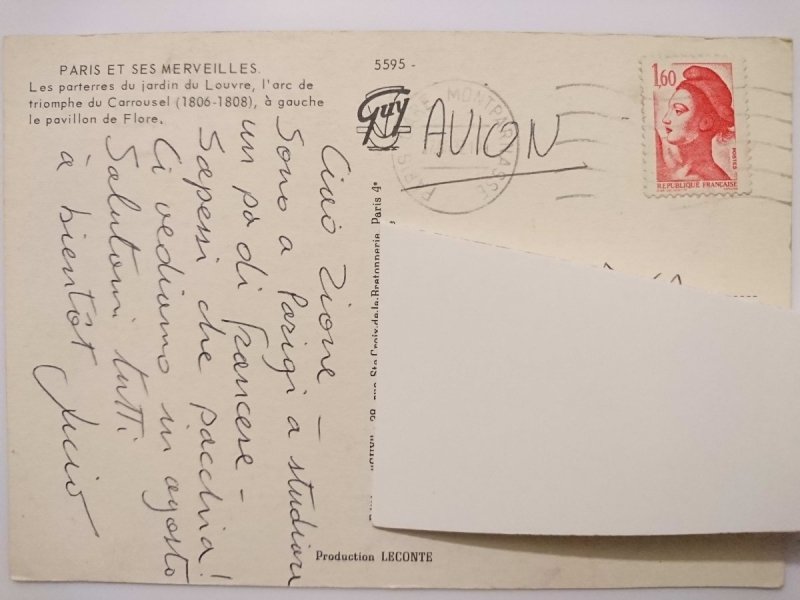 PARIS ET SES MERVEILLES.
Les parterres du jardin du Louvre, l'arc de
triomphe du Carrousel (1806-1808), à gauche
le pavillon de Flore.
5595 -
Guy
PARIS MONTPARNASSE
AVION
1,60
POSTES
REPUBLIQUE FRANÇAISE
Ciao Zione -
Sono a Parigi a studiare
un pò di francese -
Sapessi che pacchia!
Ci vediamo in agosto
Salutami tutti
à bientôt Lucio
rue Ste Croix-de-la-Bretonnerie, Paris 4e
Production LECONTE